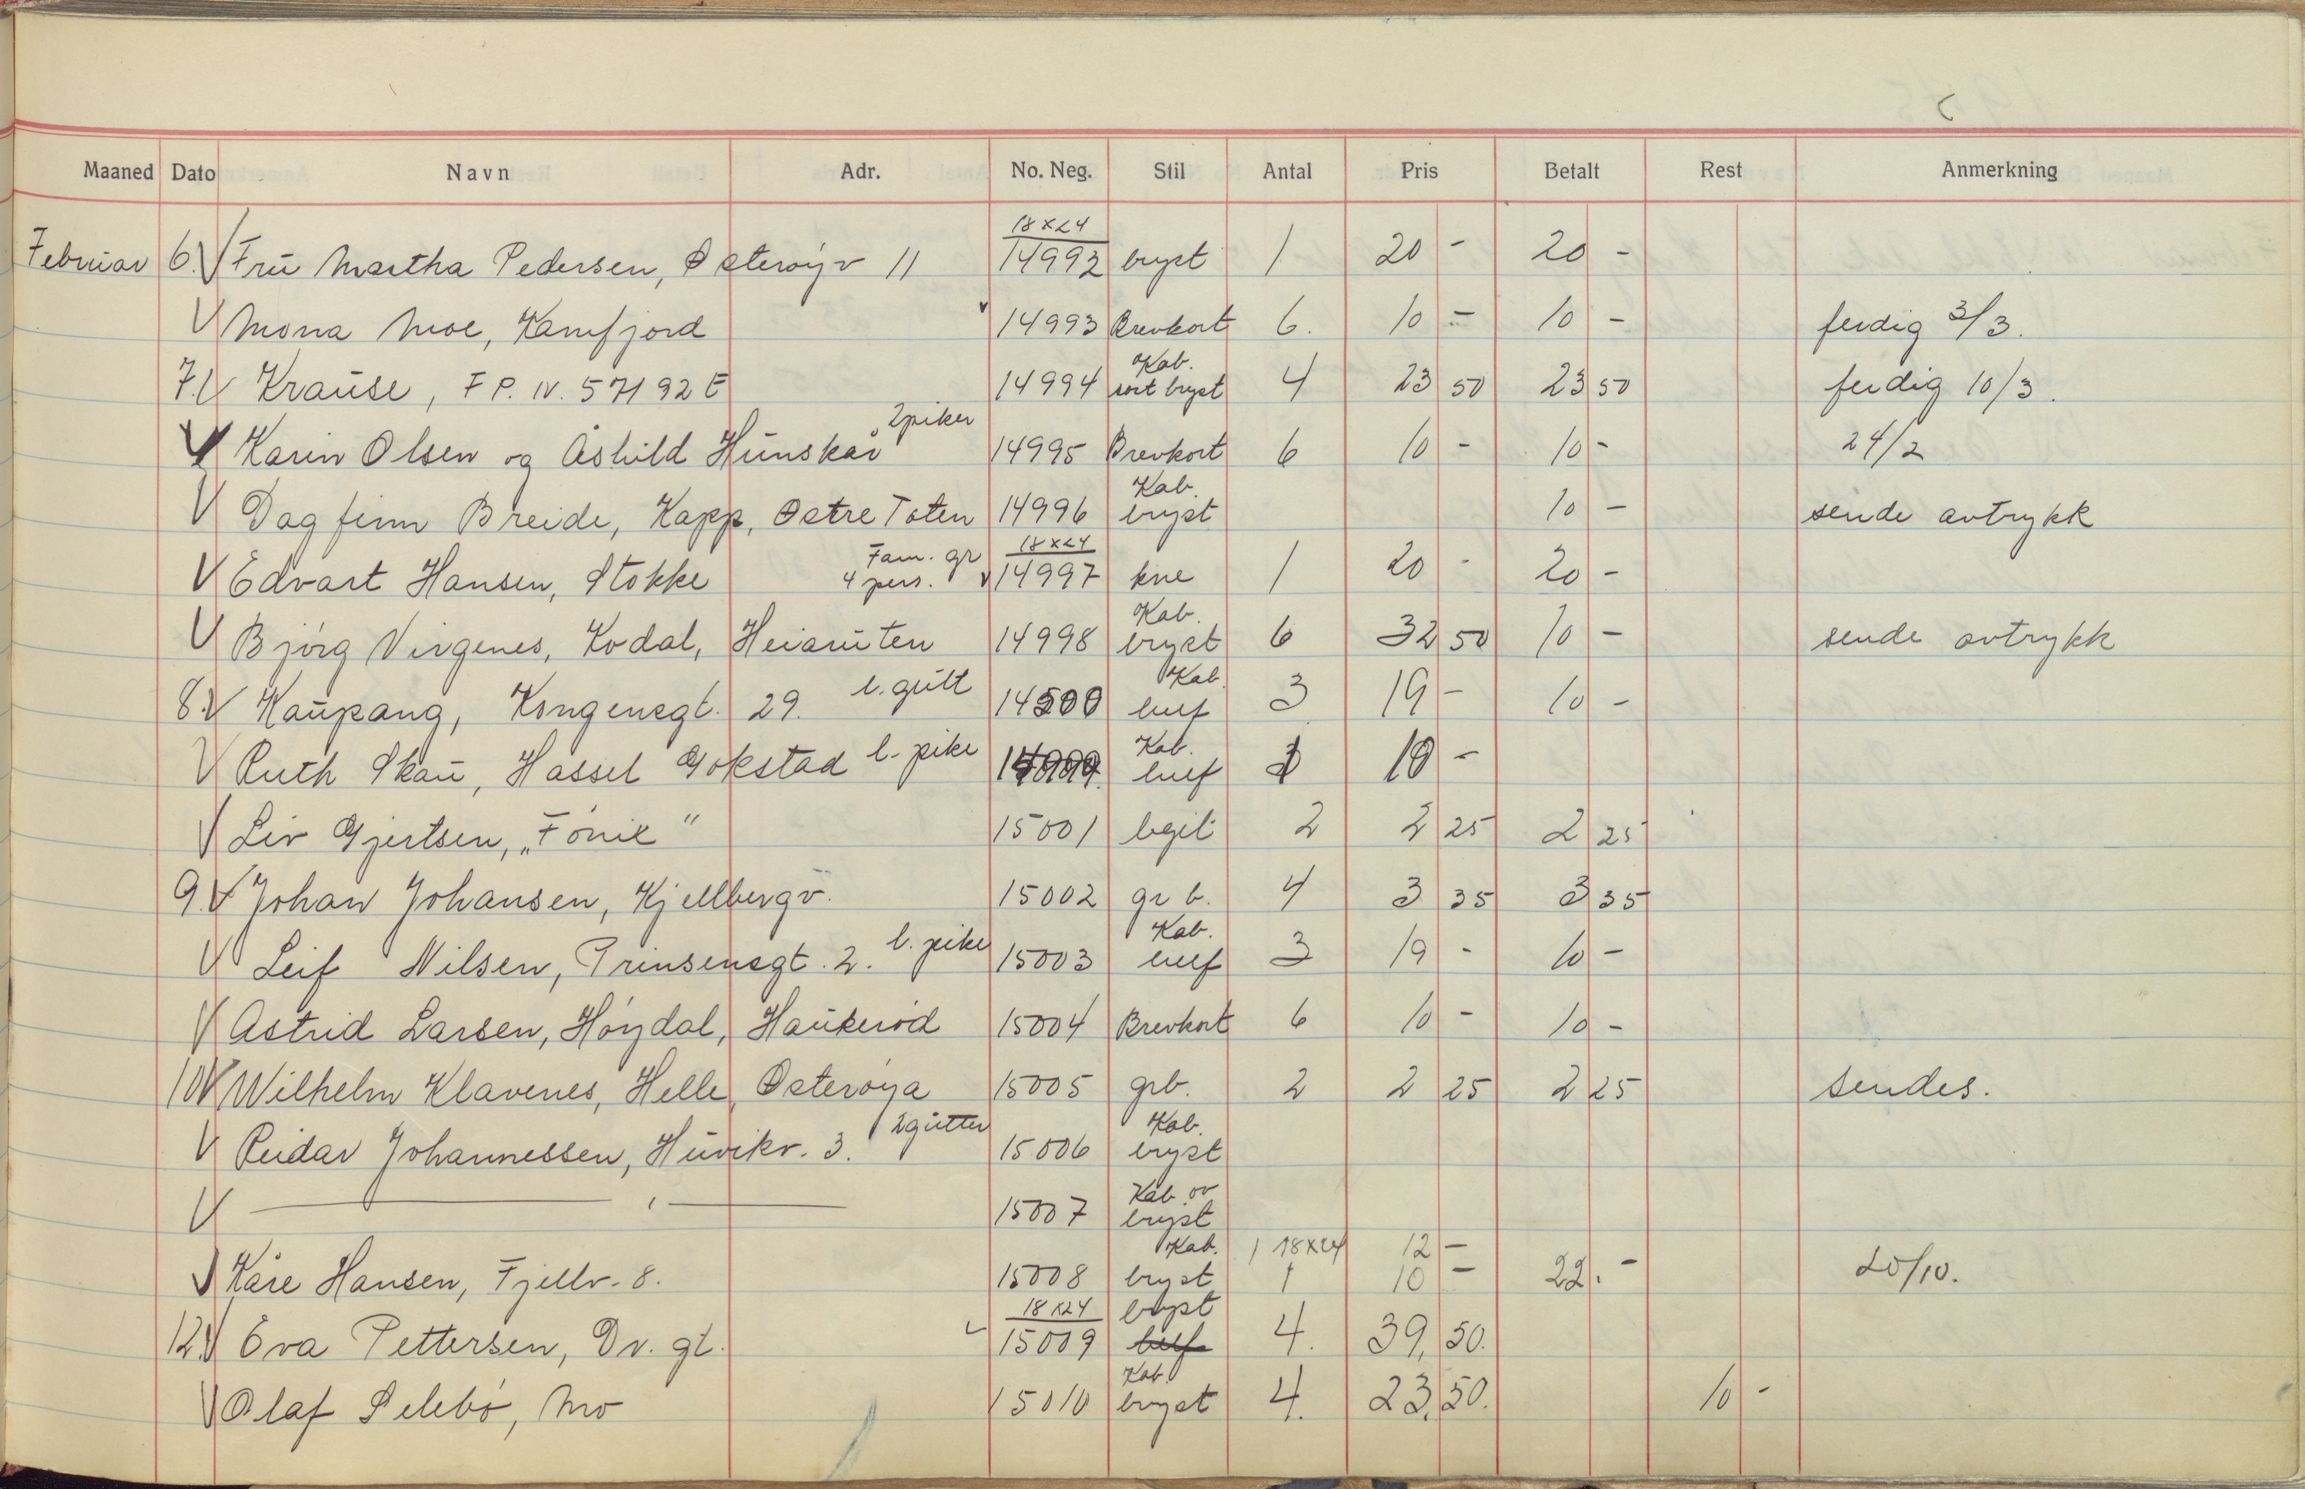 Maaned Dato Navn Adr. No. Neg. Stil Antal Pris Betalt Rest Anmerkning
18x24
Februar 6. V Fru Martha Pedersen, Østerøyv 11 14992 bryst 1 20 - 20 -
V Mona Moe, Kamfjord v 14993 Brevkort 6. 10 - 10 - ferdig 3/3.
Kab.
7. V Krause, F P. IV. 57192 E 14994 sort bryst 4 23 50 23 50 ferdig 10/3.
2 piker
V Karin Olsen og Åshild Hunskår 14995 Brevkort 6 10 - 10 - 24/2
Kab.
V Dagfinn Breide, Kapp, Østre Toten 14996 bryst 10 - sende avtrykk
Fam. gr 18x24
V Edvart Hansen, Stokke 4 pers. v 14997 kne 1 20 - 20 -
Kab.
V Bjørg Virgenes, Kodal, Heiaruten 14998 bryst 6 32 50 10 - sende avtrykk
l. gutt Kab.
8. V Kaupang, Kongensgt. 29. helf 3 19 - 10 -
l. pike Kab.
V Ruth Skau, Hassel Gokstad helf 10 -
V Liv Gjertsen, „Fønix" 15001 legit 2 2 25 2 25
9. V Johan Johansen, Kjellbergv. 15002 gr b. 4 3 35 3 35
l. pike Kab.
V Leif Nilsen, Prinsensgt. 2. 15003 helf 3 19 - 10 -
V Astrid Larsen, Høydal, Haukerød 15004 Brevkort 6 10 - 10 -
10 V Wilhelm Klavenes, Helle, Østerøya 15005 grb. 2 2 25 2 25 sendes.
2 gutter Kab.
V Reidar Johannessen, Huvikv. 3. 15006 bryst
Kab. ov
V — " — 15007 bryst
Kab. 1 18x24 12 -
V Kåre Hansen, Fjellv. 8. 15008 bryst 1 10 - 22. - 20/10.
18x24 bryst
12. V Eva Pettersen, Dr. gt. v 15009 helf 4. 39, 50.
Kab.
V Olaf Selebø, Mo 15010 bryst 4. 23, 50. 10 -